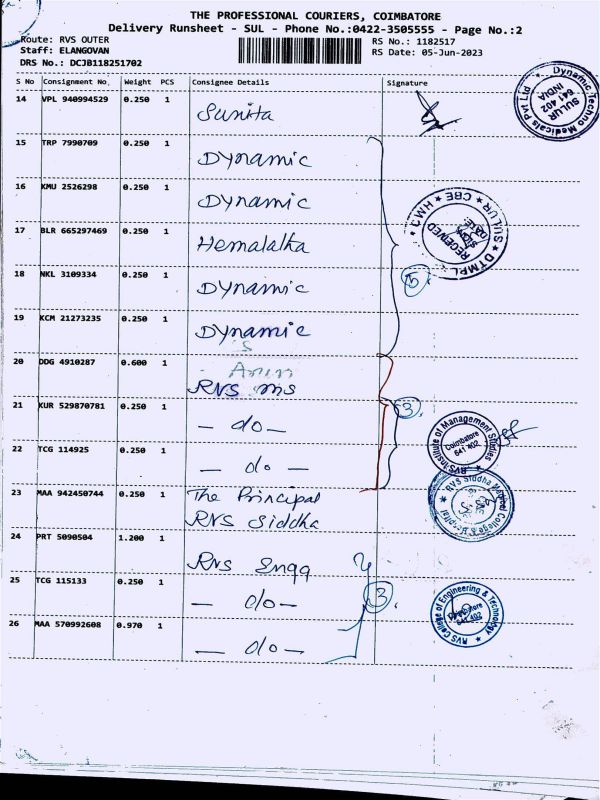 THE PROFESSIONAL COURIERS, COIMBATORE
Delivery Runsheet - SUL - Phone No.:0422-3505555 - Page No.:2
Route: RVS OUTER
RS No.: 1182517
Staff: ELANGOVAN
RS Date: 05-Jun-2023
DRS No.: DCJB118251702
S No Consignment No. Weight PCS Consignee Details Signature
14 VPL 940994529 0.250 1 Sunita
Dynamic Techno Medicals Pvt Ltd
SULUR
641 402
INDIA
15 TRP 7990709 0.250 1 Dynamic
16 KMU 2526298 0.250 1 Dynamic
CWH ★ SULUR CBE ★ DTMPL
RECEIVED
17 BLR 665297469 0.250 1 Hemalatha
18 NKL 3109334 0.250 1 Dynamic
5
19 KCM 21273235 0.250 1 Dynamic
20 DDG 4910287 0.600 1 RVS ms
21 KUR 529870781 0.250 1 - do -
3
RVS Institute of Management Studies
Coimbatore
641 402
22 TCG 114925 0.250 1 - do -
23 MAA 942450744 0.250 1 The Principal
RVS Siddha
RVS Siddha Medical College & Hospital
24 PRT 5090504 1.200 1 RVS Engg
25 TCG 115133 0.250 1 - do -
3
RVS College of Engineering & Technology
Coimbatore
641 402
26 MAA 570992608 0.970 1 - do -